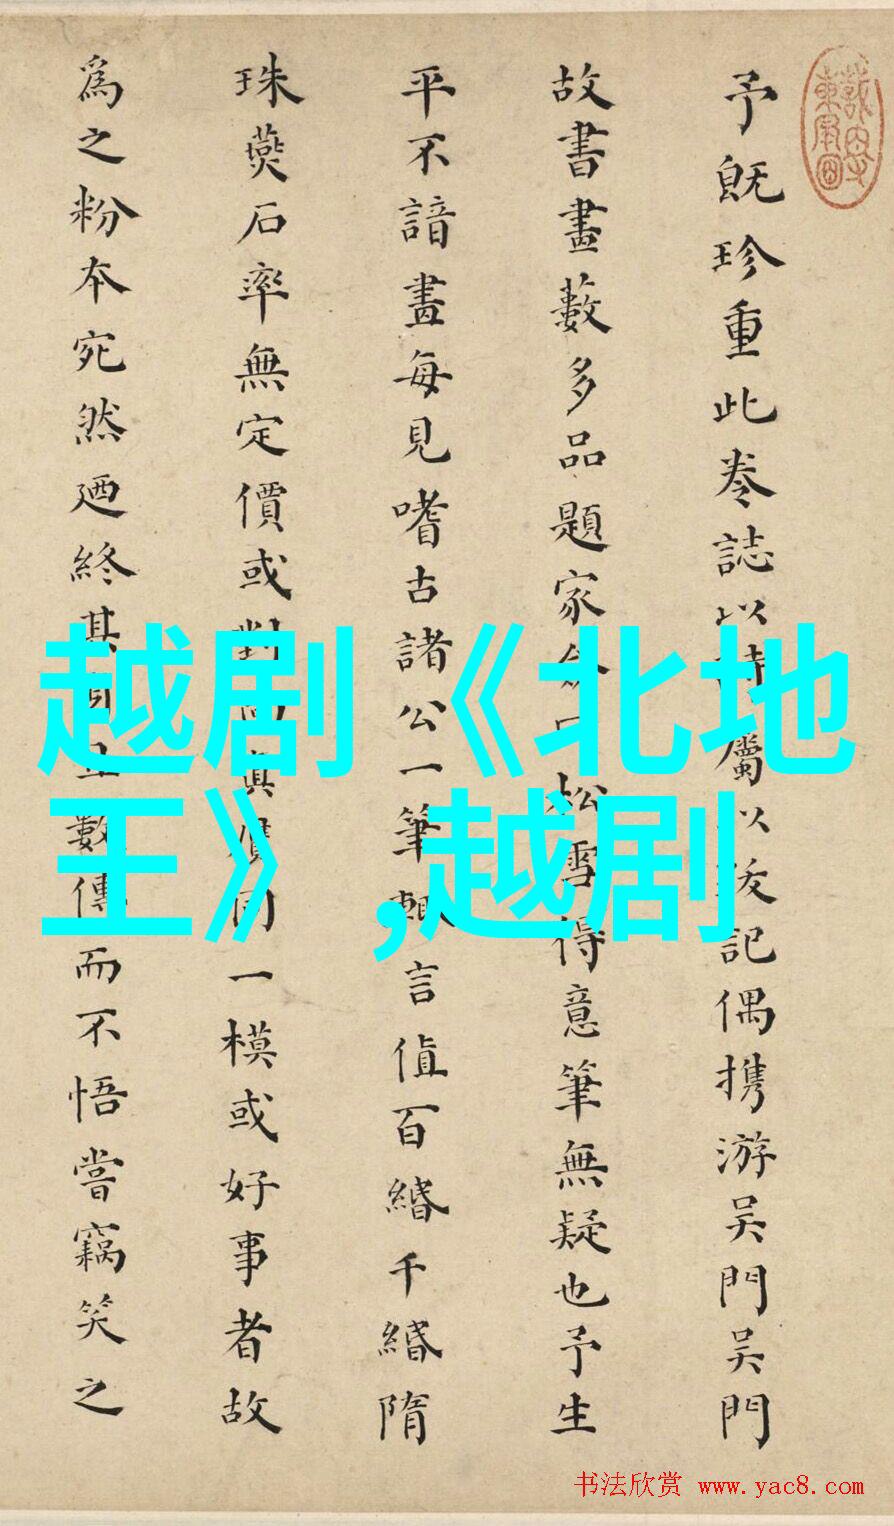 予既珍重此卷誌以詩屬以跋記偶携游吴門吴門
故書畫藪多品題家僉曰松雪得意筆無疑也予生
平不諳畫每見嗜古諸公一筆輒言值百緡千緡隋
珠燕石率無定價或對面真贋同一模或好事者故
為之粉本宛然迺終其身且數傳而不悟嘗竊笑之
越剧《北地
王》,越剧
书法欣赏 www.yac8.com